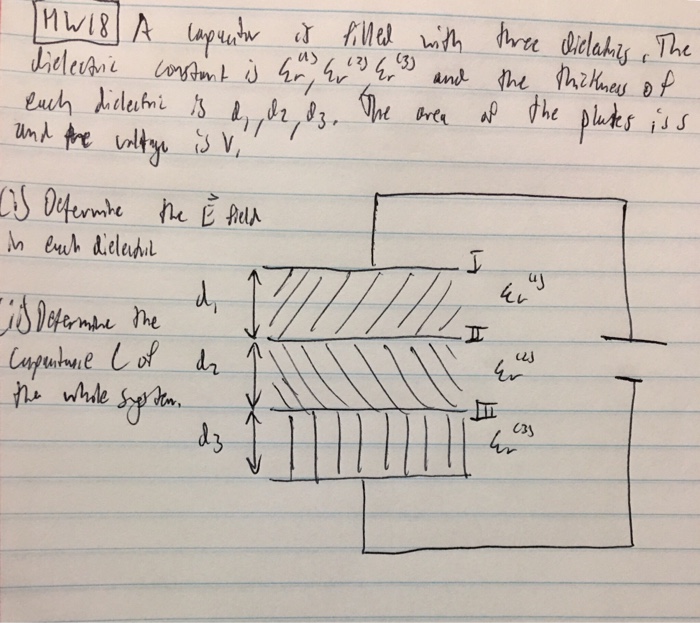 HW18 A capacitor is filled with three dielectrics. The
dielectric constant is εr⁽¹⁾, εr⁽²⁾ εr⁽³⁾ and the thickness of
each dielectric is d₁, d₂, d₃. The area of the plates is s
and the voltage is V.
(i) Determine the E⃗ field
in each dielectric
(ii) Determine the
Capacitance C of
the whole system.
I
d₁
εr⁽¹⁾
II
d₂
εr⁽²⁾
III
d₃
εr⁽³⁾